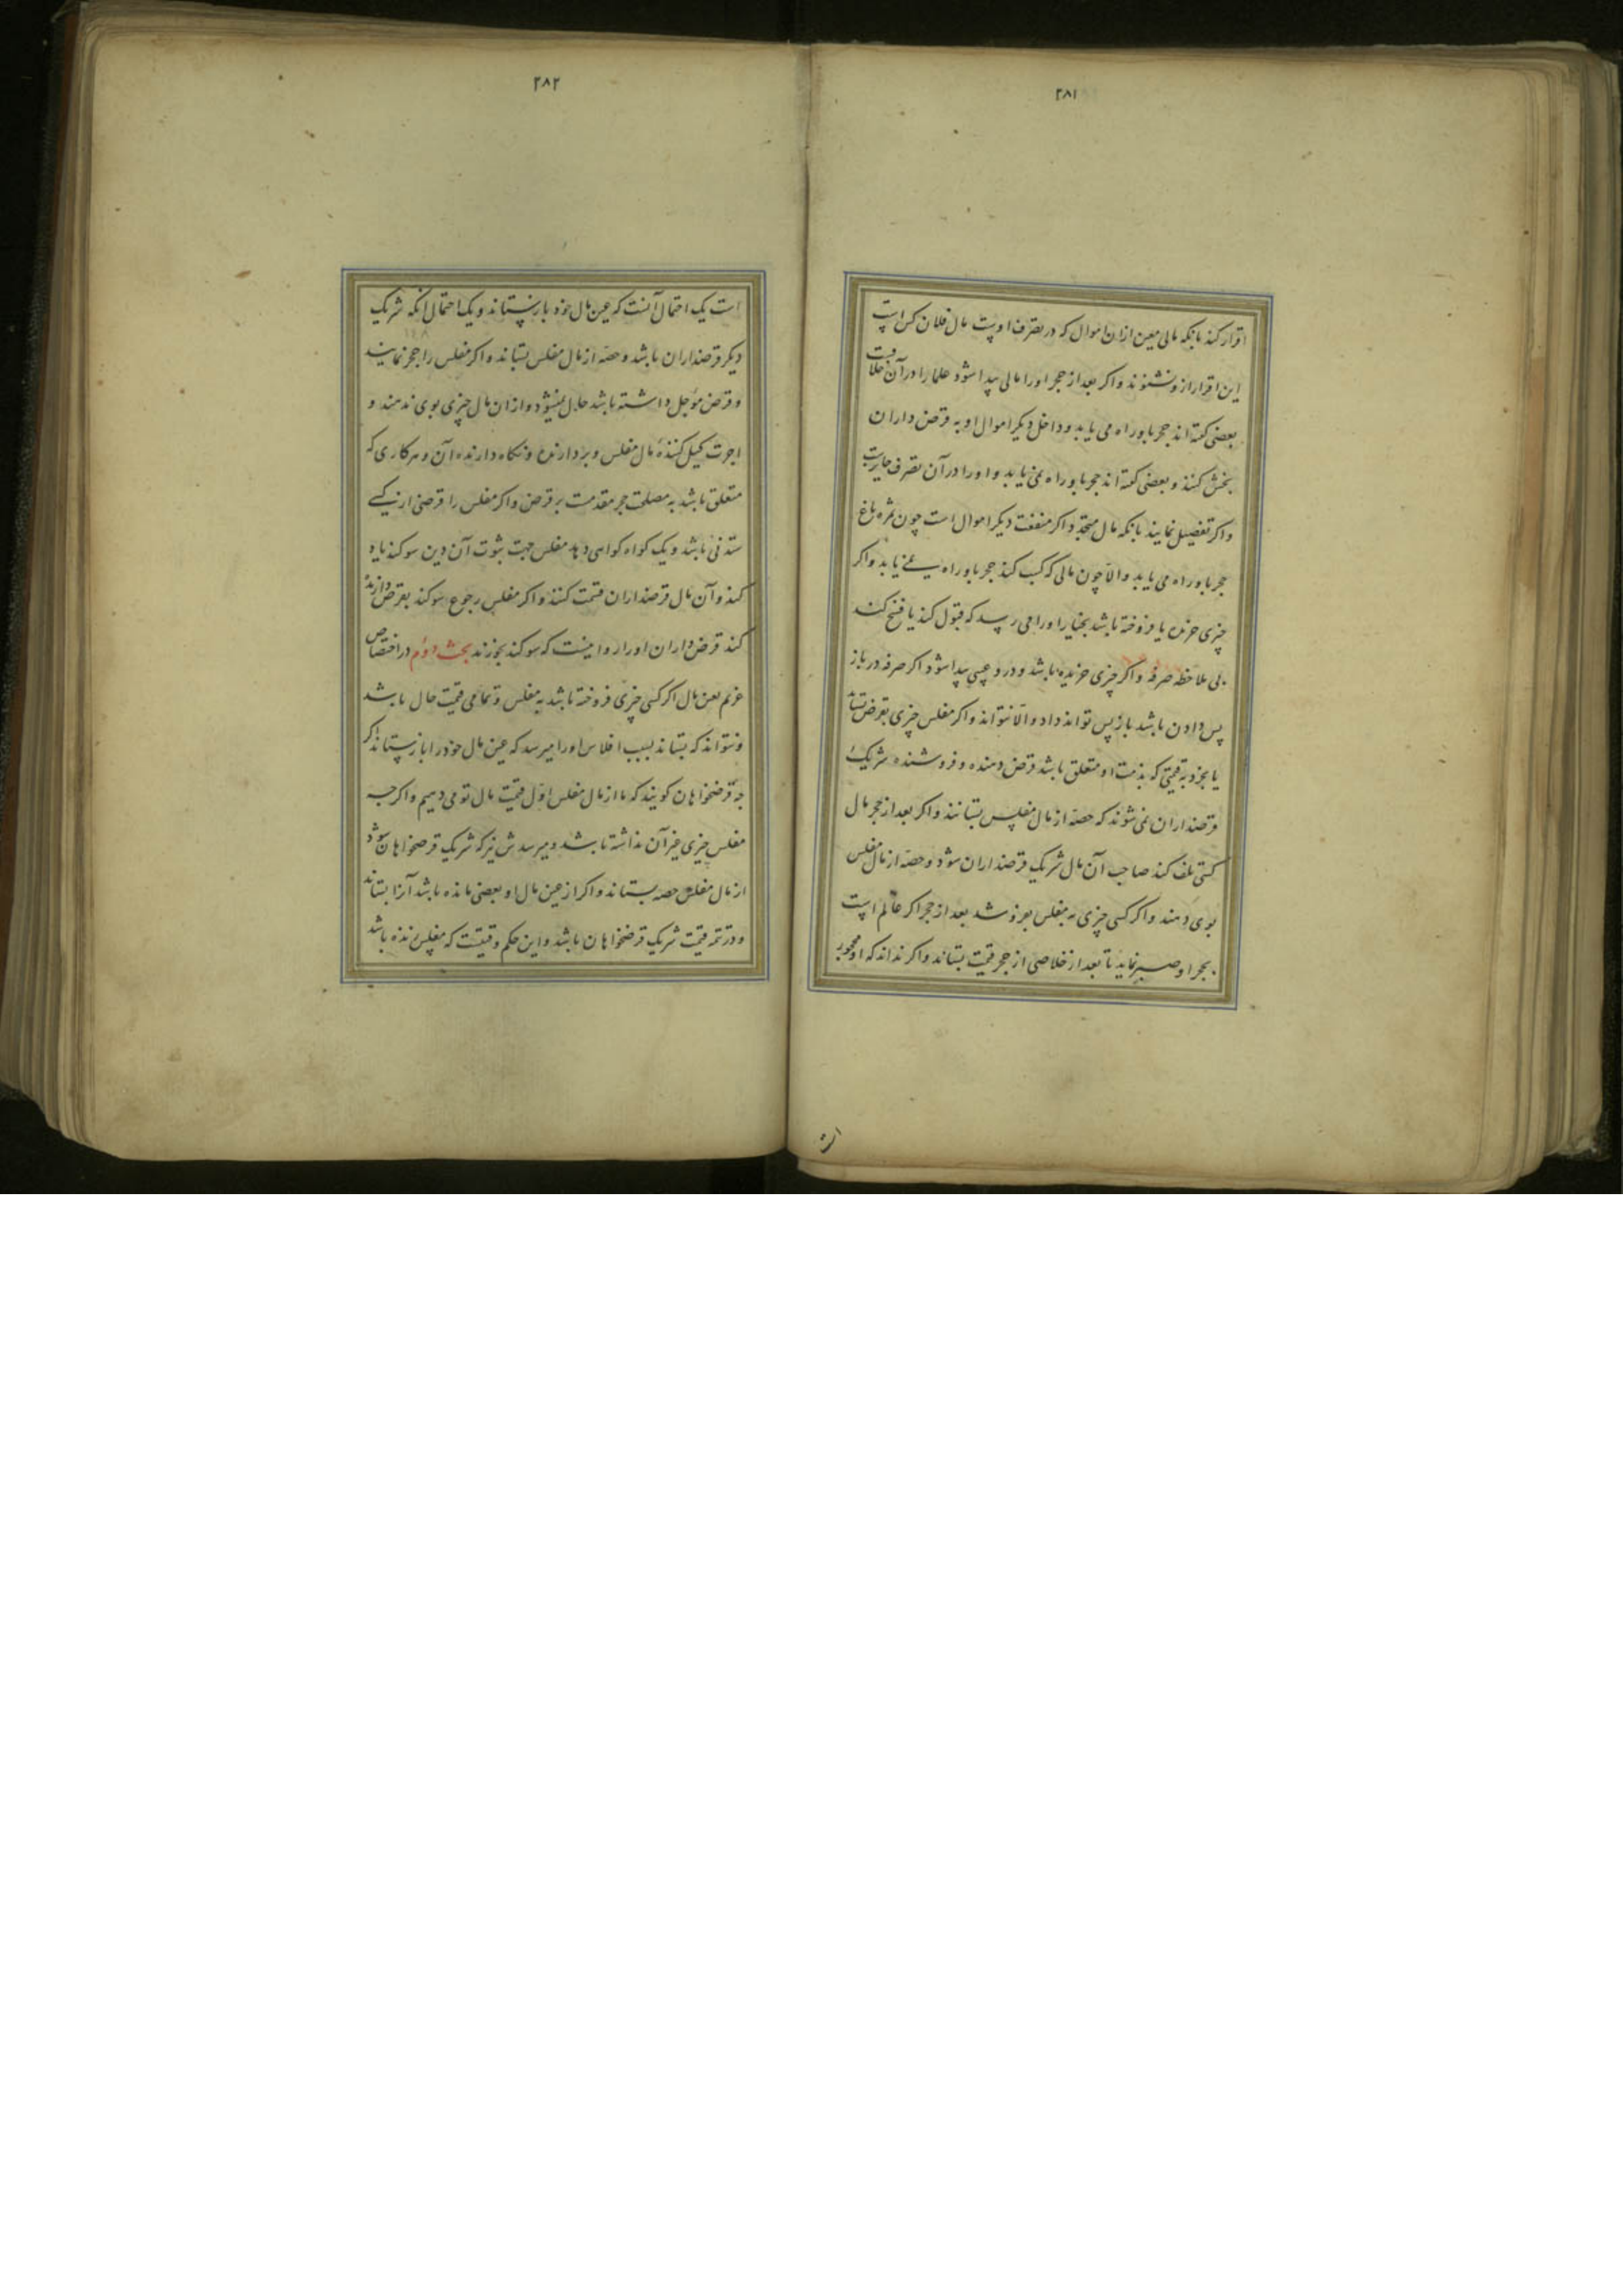 ۲۸۱
اقرار کند بانکه مالی معین ازان اموال که در تصرف اوست مال فلان کس است
این اقرار ازو نشنوند و اکر بعد از حجر او را مالی پیدا شود علما را در آن خلافست
بعضی کفته اند حجر باو راه می یابد و داخل دیکر اموال او به قرض داران
بخش کنند و بعضی کفته اند حجر باو راه نمی یابد و او را در آن تصرف جایزست
و اکر تفصیل نمایند بانکه مال متجدد اکر منفعت دیکر اموال است چون ثمره باغ
حجر باو راه می یابد و الا چون مالی که کسب کند حجر باو راه نمی یابد و اکر
چیزی خریده یا فروخته باشد بخیار او را می رسد که قبول کند یا فسخ کند
بی ملاحظه صرفه و اکر چیزی خریده باشد و درو عیبی پیدا شود اکر صرفه در باز
پس دادن باشد باز پس تواند داد و الا نتواند و اکر مفلس چیزی بقرض بستاند
یا بخرد به قیمتی که بذمت او متعلق باشد قرض دهنده و فروشنده شریک
قرضداران نمی شوند که حصه از مال مفلس بستانند و اکر بعد از حجر مال
کسی تلف کند صاحب آن مال شریک قرضداران شود و حصه از مال مفلس
بوی دهند و اکر کسی چیزی به مفلس بفروشد بعد از حجر اکر عالم است
بحجر او صبر نماید تا بعد از خلاصی از حجر قیمت بستاند و اکر نداند که او محجور
است
۲۸۲
است یک احتمال آنست که عین مال خود باز ستاند و یک احتمال انکه شریک
دیکر قرضداران باشد و حصه از مال مفلس بستاند و اکر مفلس را حجر نمایند
و قرض مؤجل داشته باشد حال نمیشود و ازان مال چیزی بوی ندهند و
اجرت کیل کننده مال مفلس و بردارنده و نکاه دارنده آن و هر کاری که
متعلق باشد به مصلحت حجر مقدمست بر قرض و اکر مفلس را قرضی از کسی
ستدنی باشد و یک کواه کواهی دهد مفلس جهت ثبوت آن دین سوکند یاد
کند و آن مال قرضداران قسمت کنند و اکر مفلس رجوع سوکند بقرض داران
کند قرض داران او را روا نیست که سوکند بخورند بحث دوم در اختصاص
غریم بعین مال اکر کسی چیزی فروخته باشد به مفلس و تمامی قیمت حال باشد
و نتواند که بستاند بسبب افلاس او را میرسد که عین مال خود را باز ستاند اکر
چه قرضخواهان کویند که ما از مال مفلس اول قیمت مال تو می دهیم و اکر چه
مفلس چیزی غیر آن نداشته باشد و میرسدش نیز که شریک قرضخواهان شود
از مال مفلس حصه بستاند و اکر از عین مال او بعضی مانده باشد آنرا بستاند
و در تتمه قیمت شریک قرضخواهان باشد و این حکم وقتیست که مفلس زنده باشد